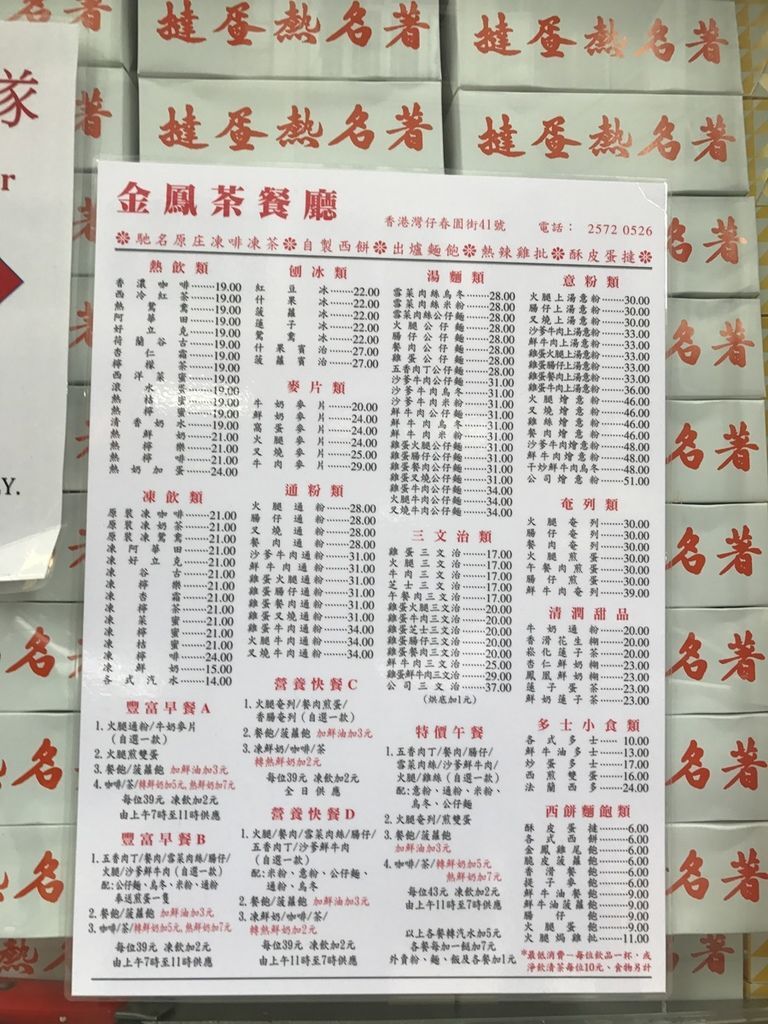 撻蛋熱名著
撻蛋熱名著
撻蛋熱名著
撻蛋熱名著
金鳳茶餐廳
香港灣仔春園街41號 電話： 2572 0526
❇馳名原庄凍啡凍茶❇自製西餅❇出爐麵飽❇熱辣雞批❇酥皮蛋撻❇
熱飲類
香濃咖啡......19.00
西冷紅茶......19.00
熱鴛鴦......19.00
阿華田......19.00
好立克......19.00
荷蘭谷古......19.00
杏仁霜......19.00
檸檬茶......19.00
西洋菜蜜......19.00
滾水蛋......19.00
熱檸蜜......19.00
清香奶水......19.00
熱鮮奶......21.00
熱檸樂......21.00
熱檸啡......21.00
熱奶加蛋......24.00
凍飲類
原裝凍咖啡......21.00
原裝凍奶茶......21.00
原裝凍鴛鴦......21.00
凍阿華田......21.00
凍好立克......21.00
凍谷古......21.00
凍檸樂......21.00
凍杏霜......21.00
凍檸茶......21.00
凍菜蜜......21.00
凍桔蜜......21.00
凍檸啡......24.00
凍鮮奶......15.00
各式汽水......14.00
豐富早餐A
1. 火腿通粉/牛奶麥片
（自選一款）
2. 火腿煎雙蛋
3. 餐飽/菠蘿飽 加鮮油加3元
4. 咖啡/茶/轉鮮奶加5元, 熱鮮奶加7元
每位39元 凍飲加2元
由上午7時至11時供應
豐富早餐B
1. 五香肉丁/餐肉/雪菜肉絲/腸仔/
火腿/沙爹鮮牛肉（自選一款）
配:公仔麵、烏冬、米粉、通粉
奉送煎蛋一隻
2. 餐飽/菠蘿飽 加鮮油加3元
3. 咖啡/茶/轉鮮奶加5元, 熱鮮奶加7元
每位39元 凍飲加2元
由上午7時至11時供應
刨冰類
紅豆冰......22.00
什果冰......22.00
菠蘿冰......22.00
蓮子冰......22.00
鴛鴦冰......22.00
什果賓治......27.00
菠蘿賓治......27.00
麥片類
牛奶麥片......20.00
鮮奶麥片......24.00
窩蛋麥片......24.00
火腿麥片......24.00
叉燒麥片......25.00
牛肉麥片......29.00
通粉類
火腿通粉......28.00
腸仔通粉......28.00
叉燒通粉......28.00
餐肉通粉......28.00
沙爹牛肉通粉......31.00
鮮牛肉通粉......31.00
雞蛋火腿通粉......31.00
雞蛋腸仔通粉......31.00
雞蛋餐肉通粉......31.00
雞蛋叉燒通粉......31.00
雞蛋牛肉通粉......34.00
火腿牛肉通粉......34.00
叉燒牛肉通粉......34.00
營養快餐C
1. 火腿奄列/餐肉煎蛋/
香腸奄列（自選一款）
2. 餐飽/菠蘿飽 加鮮油加3元
3. 凍鮮奶/咖啡/茶
轉熱鮮奶加2元
每位39元 凍飲加2元
全日供應
營養快餐D
1. 火腿/餐肉/雪菜肉絲/腸仔/
五香肉丁/沙爹鮮牛肉
（自選一款）
配:米粉、意粉、公仔麵、
通粉、烏冬
2. 餐飽/菠蘿飽 加鮮油加3元
3. 凍鮮奶/咖啡/茶/
轉熱鮮奶加2元
每位39元 凍飲加2元
由上午11時至7時供應
湯麵類
雪菜肉絲烏冬......28.00
雪菜肉絲米粉......28.00
雪菜肉絲公仔麵......28.00
火腿公仔麵......28.00
腸仔公仔麵......28.00
餐肉公仔麵......28.00
雞蛋公仔麵......28.00
五香肉丁公仔麵......28.00
沙爹牛肉公仔麵......31.00
沙爹牛肉烏冬......31.00
沙爹牛肉米粉......31.00
鮮牛肉公仔麵......31.00
鮮牛肉烏冬......31.00
鮮牛肉米粉......31.00
雞蛋火腿公仔麵......31.00
雞蛋腸仔公仔麵......31.00
雞蛋餐肉公仔麵......31.00
雞蛋叉燒公仔麵......31.00
雞蛋牛肉公仔麵......34.00
火腿牛肉公仔麵......34.00
叉燒牛肉公仔麵......34.00
三文治類
雞蛋三文治......17.00
火腿三文治......17.00
牛肉三文治......17.00
芝士三文治......17.00
午餐肉三文治......17.00
雞蛋火腿三文治......20.00
雞蛋牛肉三文治......20.00
雞蛋芝士三文治......20.00
雞蛋腸仔三文治......20.00
雞蛋餐肉三文治......20.00
鮮牛肉三文治......25.00
雞蛋鮮牛肉三文治......29.00
公司三文治......37.00
(烘底加1元)
特價午餐
1. 五香肉丁/餐肉/腸仔/
雪菜肉絲/沙爹鮮牛肉/
火腿/雞絲（自選一款）
配:意粉、通粉、米粉、
烏冬、公仔麵
2. 火腿奄列/煎雙蛋
3. 餐飽/菠蘿飽
加鮮油加3元
4. 咖啡/茶/轉鮮奶加5元
熱鮮奶加7元
每位43元 凍飲加2元
由上午11時至7時供應
以上各餐轉汽水加5元
各餐每加一餸加7元
外賣粉、麵、飯及各餐加1元
意粉類
火腿上湯意粉......30.00
腸仔上湯意粉......30.00
叉燒上湯意粉......30.00
沙爹牛肉上湯意粉......33.00
鮮牛肉上湯意粉......33.00
雞蛋火腿上湯意粉......33.00
雞蛋腸仔上湯意粉......33.00
雞蛋餐肉上湯意粉......33.00
雞蛋牛肉上湯意粉......36.00
火腿燴意粉......46.00
叉燒燴意粉......46.00
雞絲燴意粉......46.00
餐肉燴意粉......46.00
沙爹牛肉燴意粉......48.00
鮮牛肉燴意粉......48.00
干炒鮮牛肉烏冬......48.00
公司燴意粉......51.00
奄列類
火腿奄列......30.00
腸仔奄列......30.00
餐肉奄列......30.00
火腿煎蛋......30.00
午餐肉煎蛋......30.00
腸仔煎蛋......30.00
鮮牛肉奄列......39.00
清潤甜品
牛奶通粉......20.00
香滑花生糊......20.00
崧化蓮子茶......20.00
杏仁鮮奶糊......23.00
鳳凰鮮奶糊......23.00
蓮子蛋茶......23.00
鮮奶蓮子茶......23.00
多士小食類
各式多士......10.00
鮮牛油多士......13.00
炒蛋多士......17.00
西煎雙蛋......16.00
法蘭西多......24.00
西餅麵飽類
酥皮蛋撻......6.00
各式西餅......6.00
金鳳雞尾飽......6.00
脆皮菠蘿飽......6.00
香滑餐飽......6.00
提子麥飽......6.00
鮮牛油餐飽......9.00
鮮牛油菠蘿飽......9.00
腸仔飽......9.00
火腿蛋飽......9.00
火腿焗雞批......11.00
*最低消費一每位飲品一杯，或
淨飲清茶每位10元、食物另計